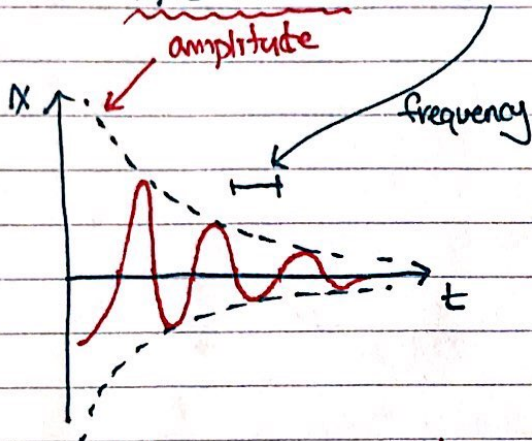 amplitude
x
frequency
t